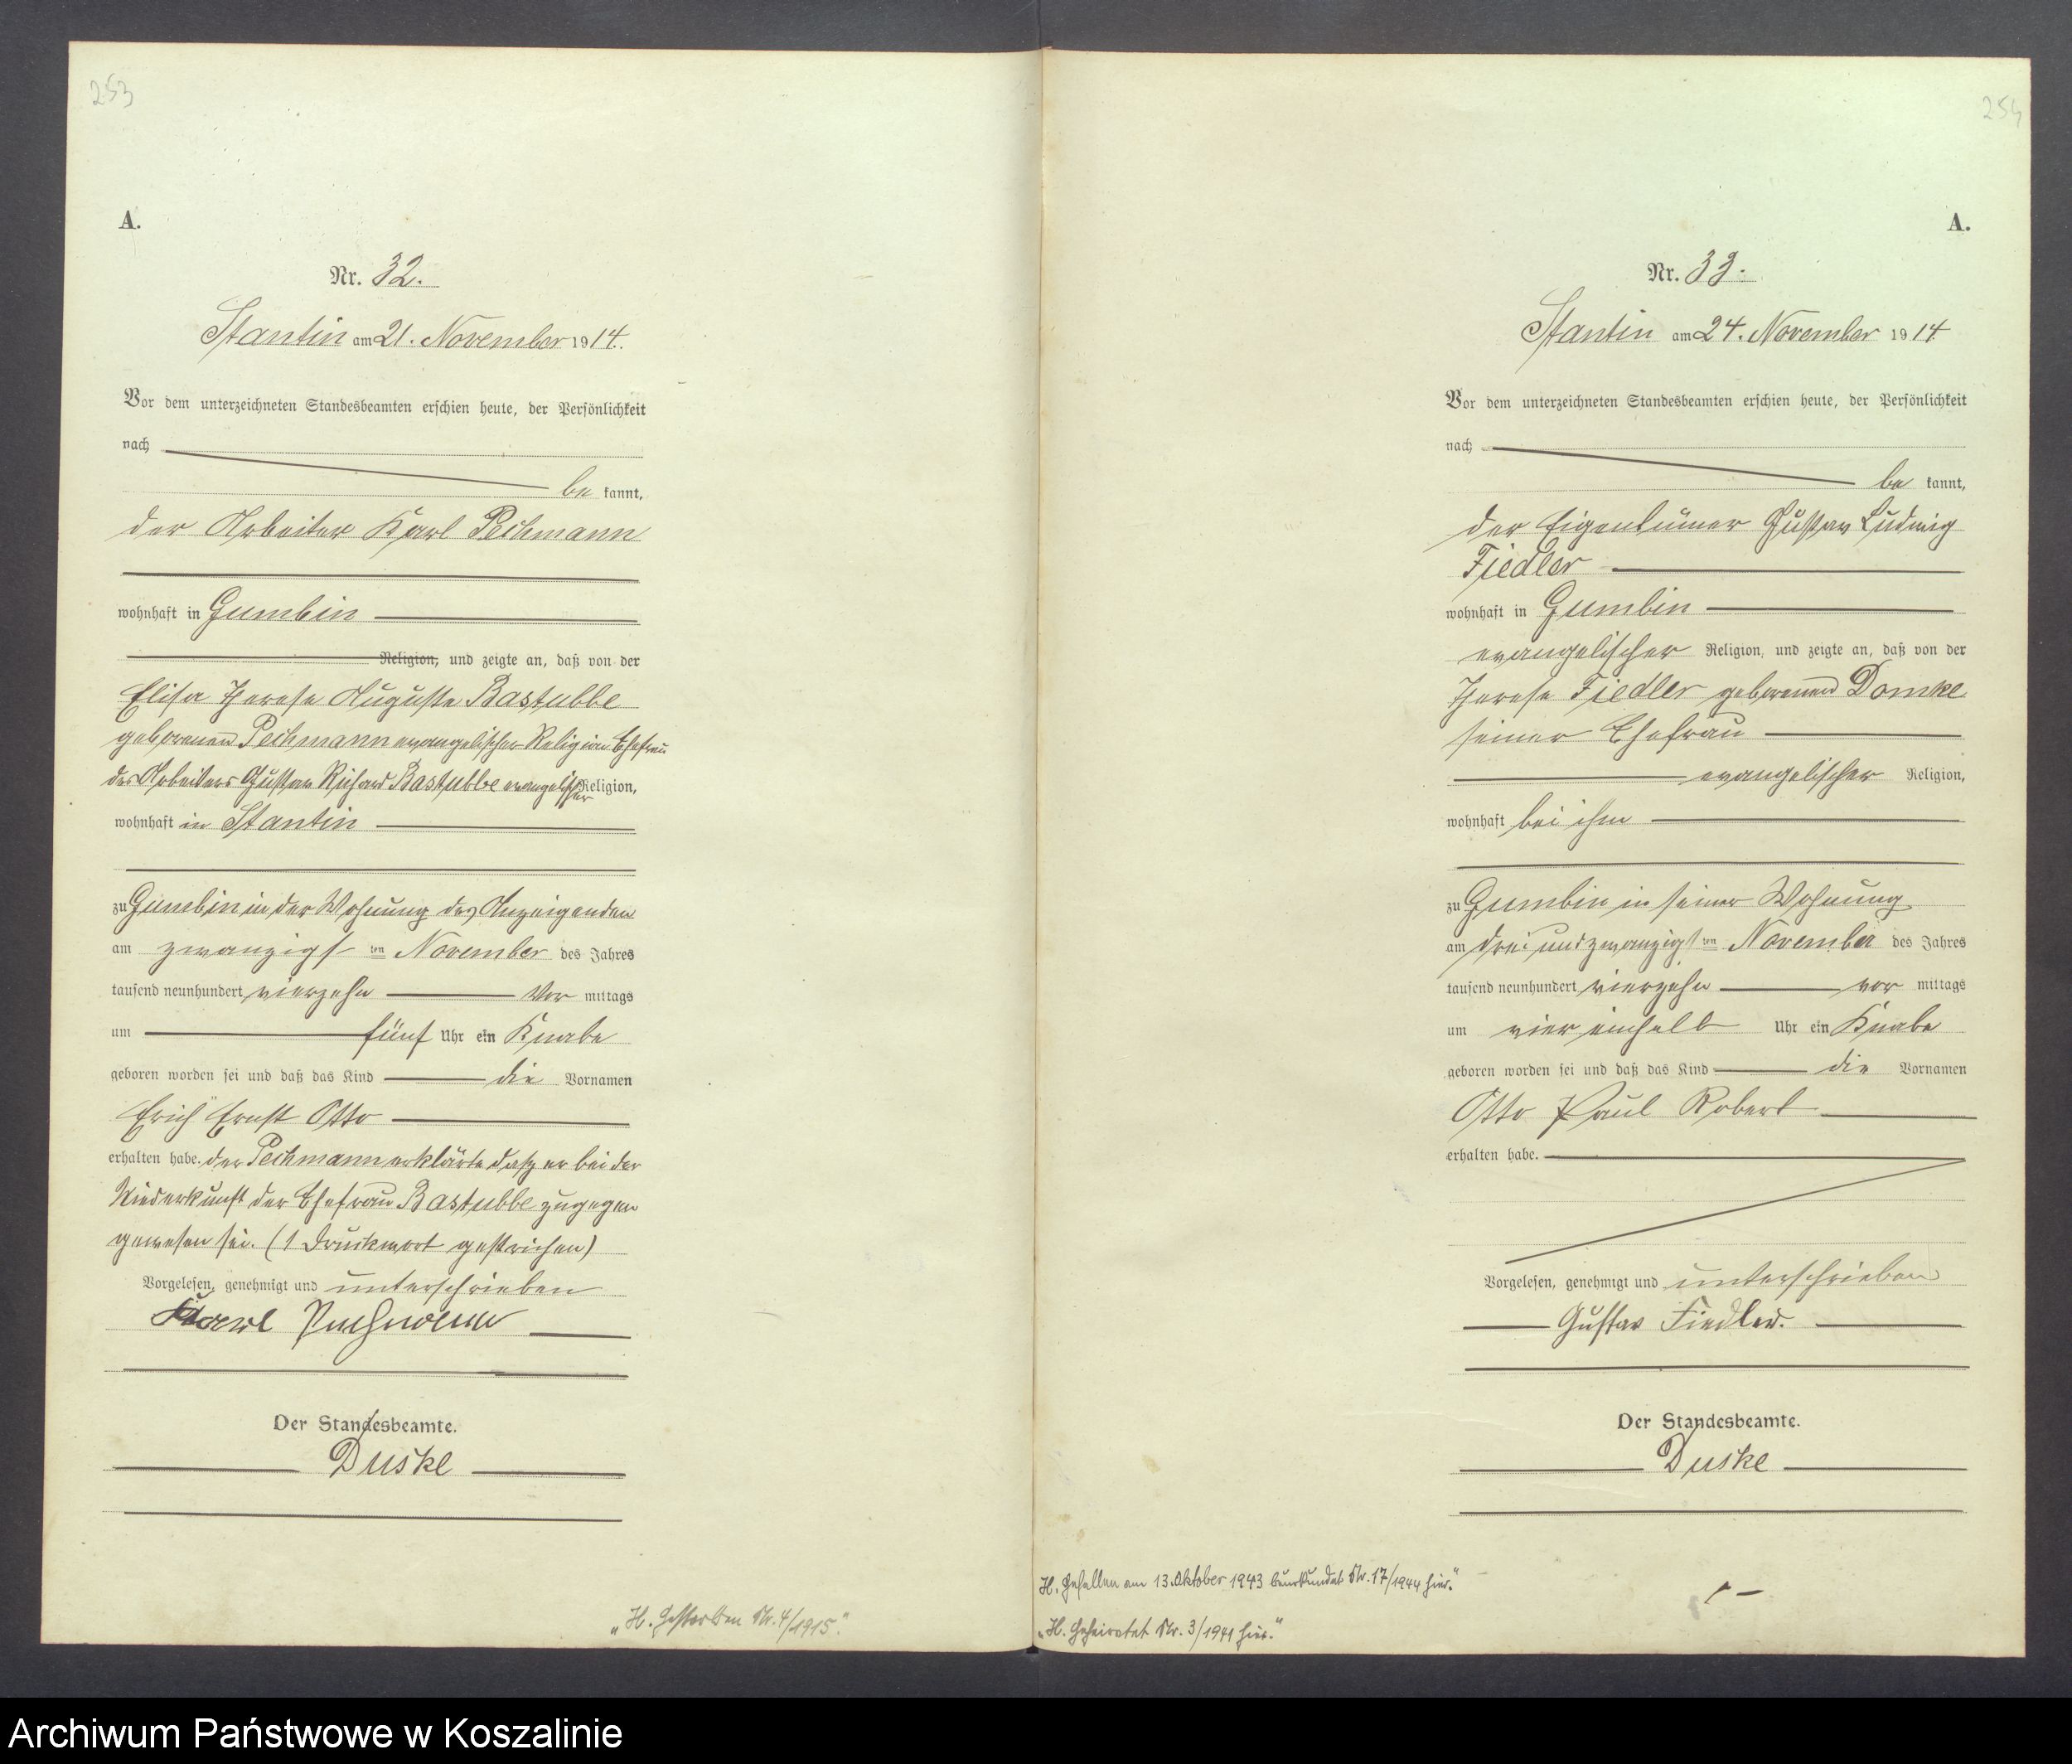 253
A.
Nr. 32.
Stantin am 21. November 1914.
Vor dem unterzeichneten Standesbeamten erschien heute, der Persönlichkeit
nach
be kannt,
der Arbeiter Karl Pechmann
wohnhaft in Gumbin
Religion, und zeigte an, daß von der
Elise Therese Auguste Bastubbe
geborenen Pechmann evangelischer Religion Ehefrau
des Arbeiters Gustav Richard Bastubbe evangelischer Religion,
wohnhaft in Stantin
zu Gumbin in der Wohnung des Anzeigenden
am zwanzigsten November des Jahres
tausend neunhundert vierzehn Vor mittags
um fünf Uhr ein Knabe
geboren worden sei und daß das Kind die Vornamen
Erich Ernst Otto
erhalten habe. der Pechmann erklärte daß er bei der
Niederkunft der Ehefrau Bastubbe zugegen
gewesen sei. (1 Druckwort gestrichen)
Vorgelesen, genehmigt und unterschrieben
Karl Pechmann
Der Standesbeamte.
Duske
„H. Gestorben Nr. 4/1915."
254
A.
Nr. 33.
Stantin am 24. November 1914
Vor dem unterzeichneten Standesbeamten erschien heute, der Persönlichkeit
nach
be kannt,
der Eigentümer Gustav Ludwig
Fiedler
wohnhaft in Gumbin
evangelischer Religion, und zeigte an, daß von der
Therese Fiedler geborenen Domke
seiner Ehefrau
evangelischer Religion,
wohnhaft bei ihm
zu Gumbin in seiner Wohnung
am drei und zwanzigsten November des Jahres
tausend neunhundert vierzehn vor mittags
um vier einhalb Uhr ein Knabe
geboren worden sei und daß das Kind die Vornamen
Otto Paul Robert
erhalten habe.
Vorgelesen, genehmigt und unterschrieben
Gustav Fiedler.
Der Standesbeamte.
Duske
H. Gefallen am 13. Oktober 1943 beurkundet Nr. 17/1944 hier."
„H. Geheiratet Nr. 3/1941 hier."
Archiwum Państwowe w Koszalinie